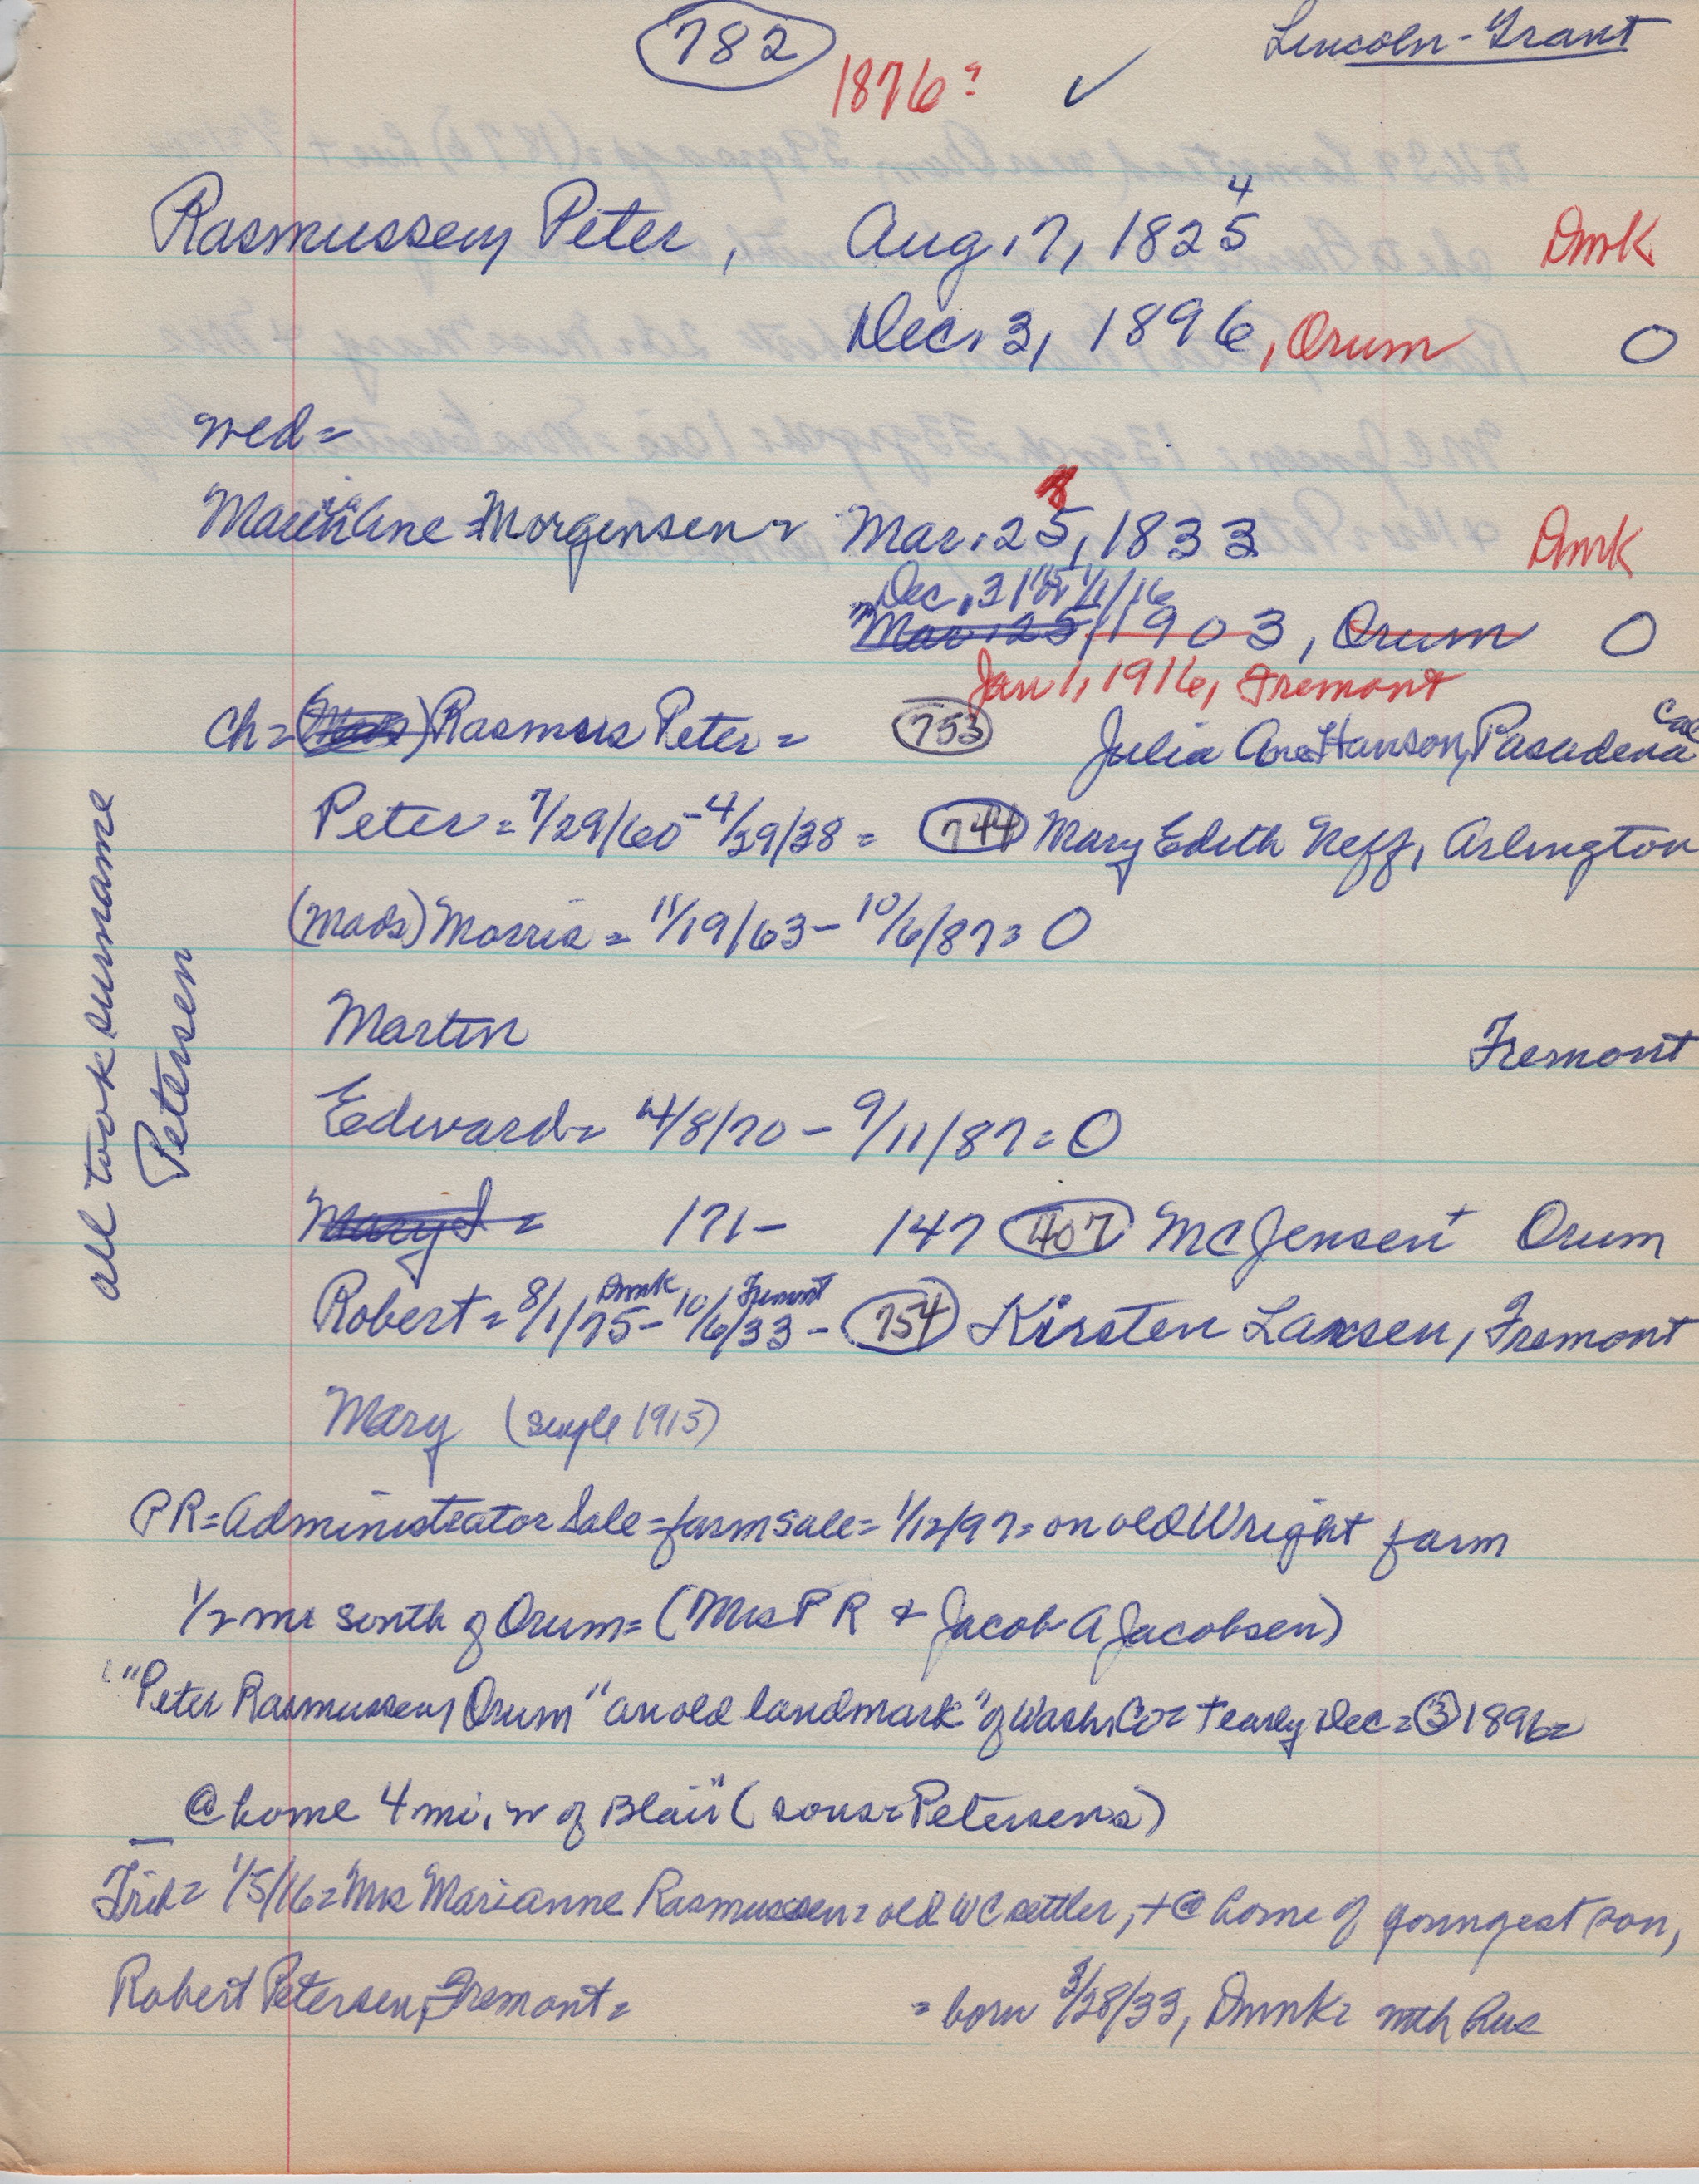 782
Lincoln-Grant
1876?
✓
4
Rasmussen, Peter, Aug. 17, 1825 Dmrk
Dec. 3, 1896, Orum O
wed =
8
Morgensen = Mar. 25, 1833 Dmrk
Dec. 31
Mar. 25, 1903, Orum O
Jan 1, 1916, Fremont
ch = (Mads) Rasmus Peter = 753 Julia Ane Hanson, Pasadena Cal
Peter = 7/29/60 - 4/29/38 = 744 Mary Edith Neff, Arlington
(Mads) Morris = 11/19/63 - 10/6/87 = O
Martin Fremont
Edward = 4/8/70 - 9/11/87 = O
Mary = 171 - 147 407 MC Jensen + Orum
Robert = 8/1/75 Dmk - 10/6/33 Fremont - 754 Kirsten Larsen, Fremont
Mary (single 1915)
all took surname
Petersen
PR = Administrator Sale = farm sale = 1/12/97 = on old Wright farm
1/2 mi south of Orum = (Mrs P R + Jacob A Jacobsen)
"Peter Rasmussen, Orum "an old landmark" of Wash. Co = + early Dec = 3 1896 =
@ home 4 mi. w of Blair" (sons = Petersens)
Trib = 1/5/16 = Mrs Marianne Rasmussen = old WC settler, + @ home of youngest son,
Robert Petersen, Fremont = = born 3/28/33, Dmrk = with hus